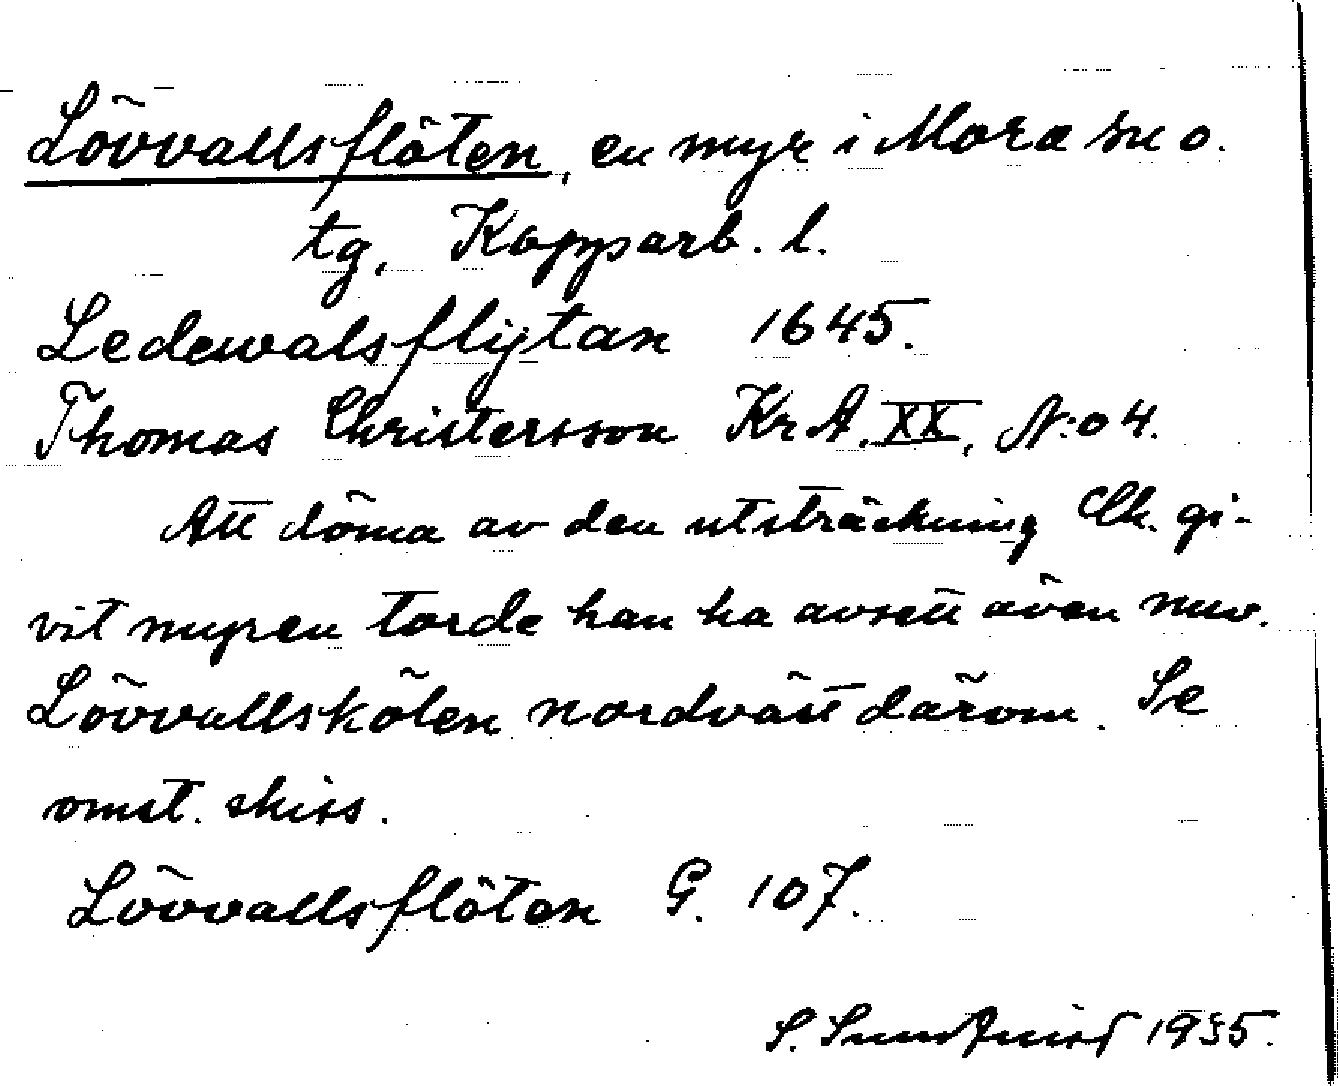 Lövvallsflöten, en myr i Mora sn o.
tg, Kopparb. l.
Ledewalsflijtan 1645.
Thomas Christersson Kr A. XX, N:o 4.
Att döma av den utsträckning Ch. gi-
vit myren torde han ha avsett även nuv.
Lövvallskölen nordväst därom. Se
omst. skiss.
Lövvallsflöten G. 107.
S. Sundquist 1935.